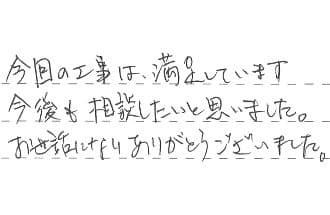 今回の工事は、満足しています
今後も相談したいと思いました。
お世話になりありがとうございました。